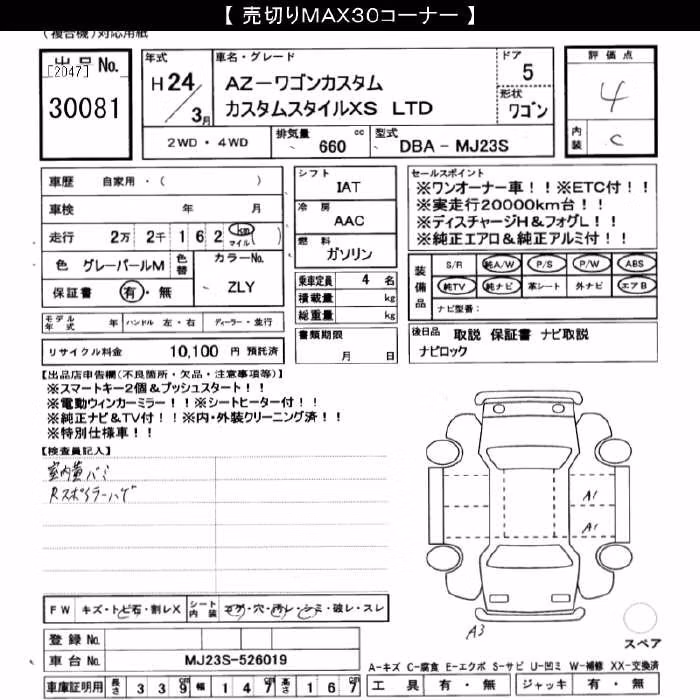 【 売切りMAX30コーナー 】
(複合機)対応用紙
出品No.
[2047]
30081
年式
H24/3月
車名・グレード
AZ－ワゴンカスタム
カスタムスタイルXS LTD
ドア
5
形状
ワゴン
評価点
4
内装
C
2WD・4WD
排気量 660 cc
型式 DBA－MJ23S
車歴 自家用・( )
車検 年 月
走行 2万 2千 1 6 2 km マイル ( )
色 グレーパールM
色替
カラーNo.
ZLY
保証書 有・無
モデル年式 年 ハンドル 左・右 ディーラー・並行
リサイクル料金 10,100 円 預託済
シフト
IAT
冷房
AAC
燃料
ガソリン
乗車定員 4 名
積載量 kg
総重量 kg
書類期限
月 日
セールスポイント
※ワンオーナー車！！※ETC付！！
※実走行20000km台！！
※ディスチャージH＆フォグL！！
※純正エアロ＆純正アルミ付！！
装備品
S/R 純A/W P/S P/W ABS
純TV 純ナビ 革シート 外ナビ エアB
ナビ型番:
後日品 取説 保証書 ナビ取説
ナビロック
【出品店申告欄(不良箇所・欠品・注意事項等)】
※スマートキー2個＆プッシュスタート！！
※電動ウィンカーミラー！！※シートヒーター付！！
※純正ナビ＆TV付！！※内・外装クリーニング済！！
※特別仕様車！！
【検査員記入】
Rスポイラーハゲ
A1
A1
A3
スペア
FW キズ・トビ石・割レX
シート内装 コゲ・穴・汚レ・シミ・破レ・スレ
登録No.
車台No. MJ23S-526019
車庫証明用 長さ 3 3 9 幅 1 4 7 高さ 1 6 7
A-キズ C-腐食 E-エクボ S-サビ U-凹ミ W-補修 XX-交換済
工具 有・無 ジャッキ 有・無